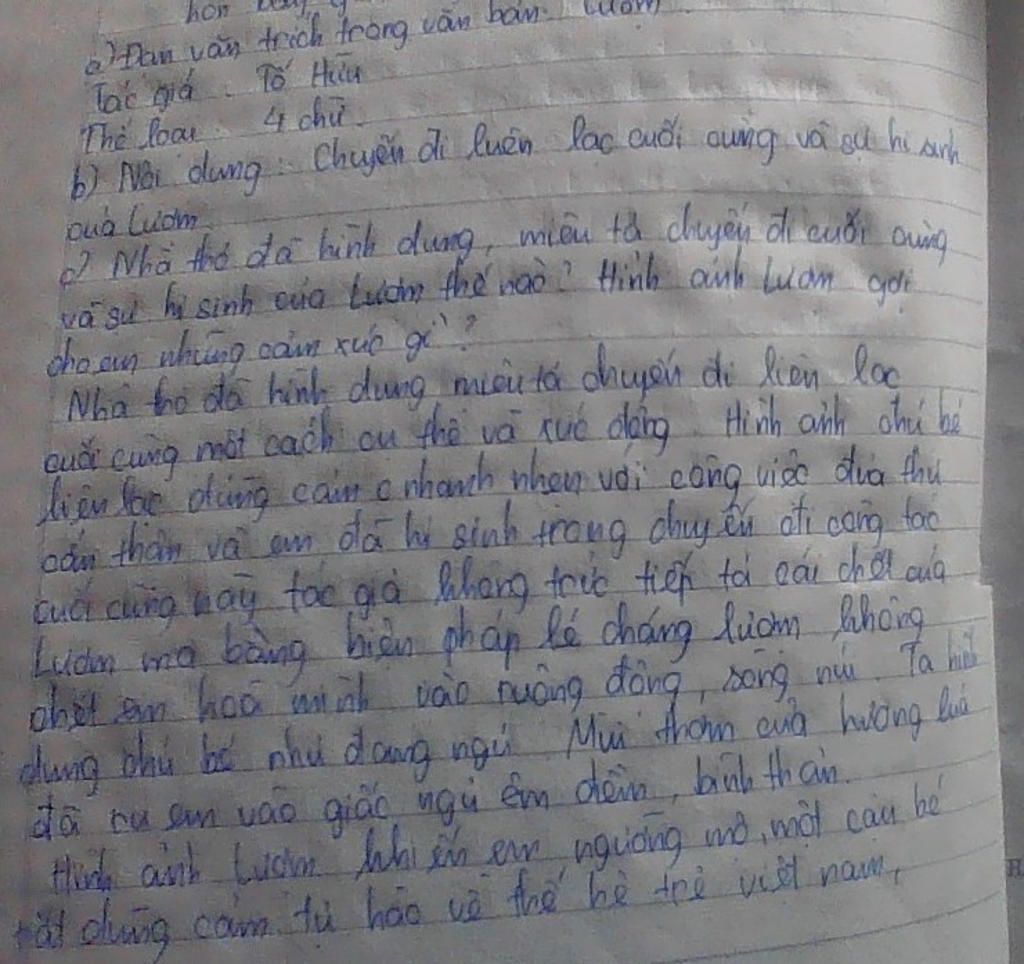 hơn
a) Đan văn trích trong văn bản. Lượm
Tác giả. Tố Hữu
Thể loại. 4 chữ
b) Nội dung: Chuyến đi luên lạc cuối cùng và sự hi sinh
của Lượm
c) Nhà thơ đã hình dung, miêu tả chuyến đi cuối cùng
và sự hi sinh của Lượm thế nào? Hình ảnh Lượm gợi
cho em những cảm xúc gì?
Nhà thơ đã hình dung miêu tả chuyến đi liên lạc
cuối cùng một cách cu thể và xúc động. Hình ảnh chú bé
liên lạc dũng cảm nhanh nhẹn với công việc đưa thư
cẩn thận và em đã hi sinh trong chuyến đi công tác
cuối cùng này tác giả không trực tiếp tả cái chết của
Lượm mà bằng biện pháp lượm không
chết em hoá mình vào ruộng đồng, sông núi. Ta hình
dung chú bé như đang ngủ. Mùi thơm của hương lúa
đã ru em vào giấc ngủ êm đềm, bình thản.
Hình ảnh Lượm khiến em ngưỡng mộ, một cậu bé
rất dũng cảm. tự hào về thế hệ trẻ việt nam,